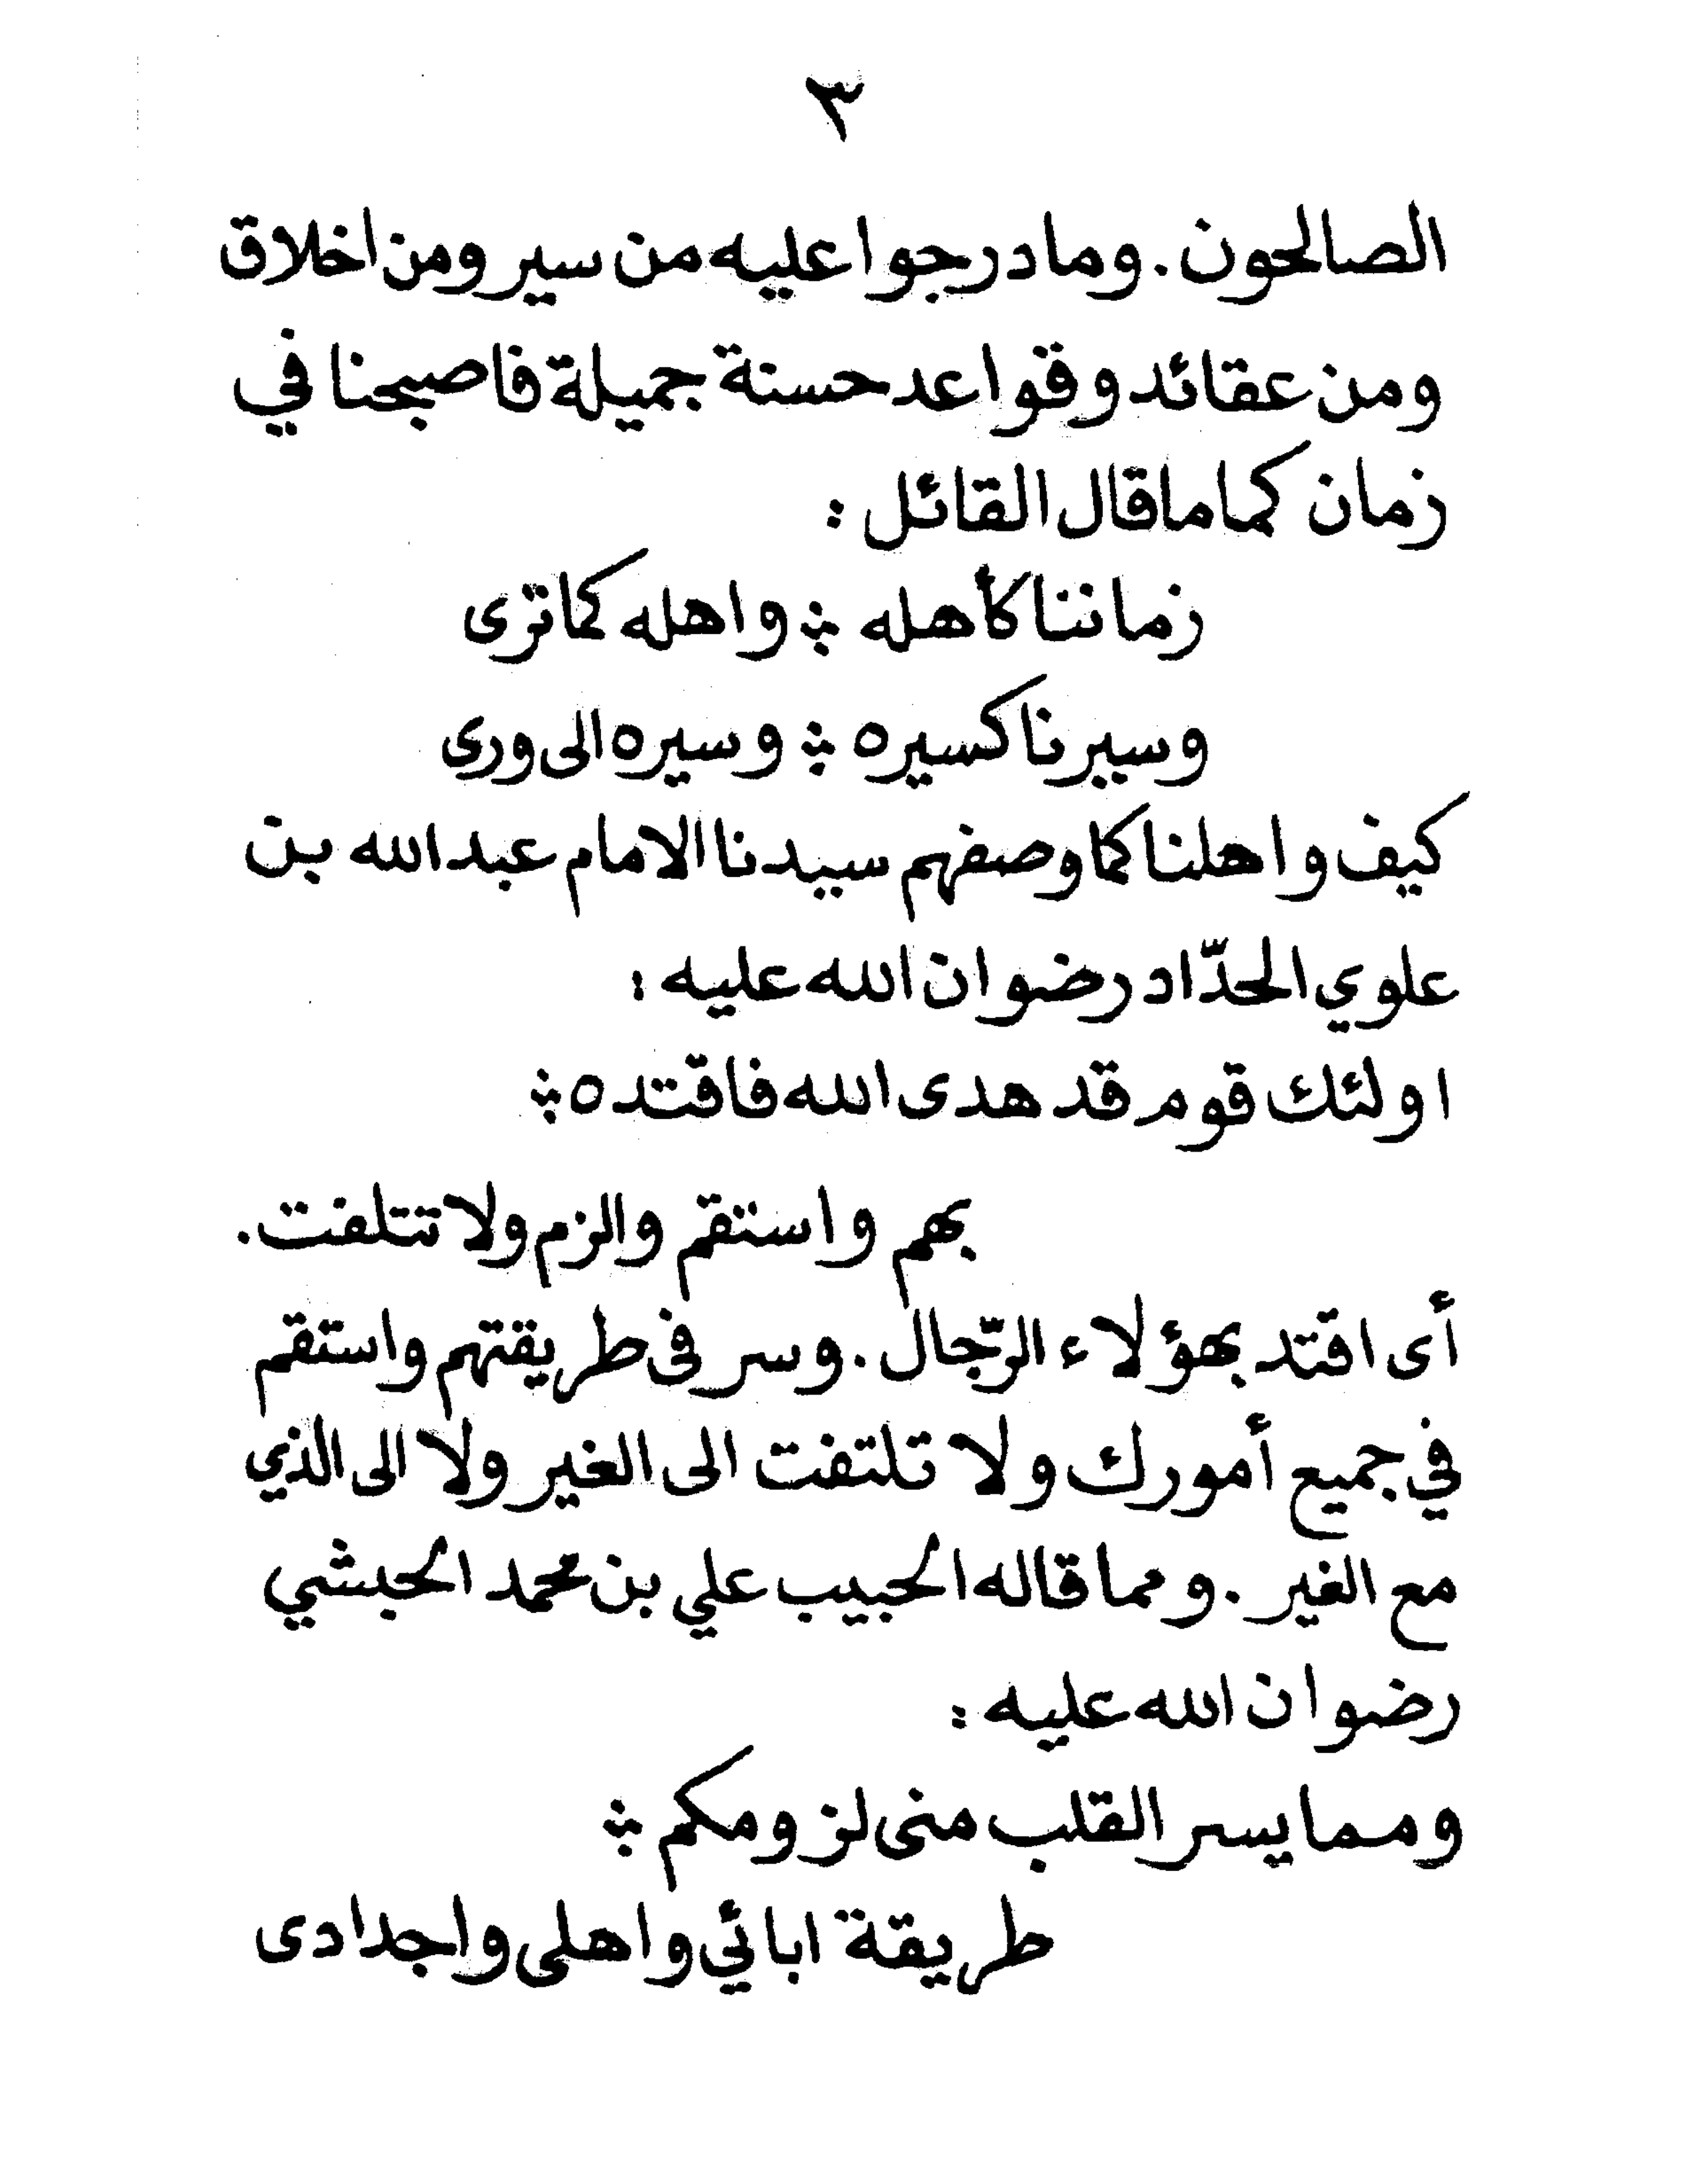 ٣
الصالحون. وما درجوا عليه من سير ومن اخلاق
ومن عقائد وقواعد حسنة جميلة فاصبحنا في
زمان كما ما قال القائل :
زماننا كأهله ؞ واهله كما ترى
وسيرنا كسيره ؞ وسيره الى ورى
كيف واهلنا كما وصفهم سيدنا الامام عبد الله بن
علوي الحدّاد رضوان الله عليه :
اولئك قوم قد هدى الله فاقتده ؞
بهم واستقم والزم ولا تتلفت.
أى اقتد بهؤلاء الرّجال. وسر فى طريقتهم واستقم
في جميع أمورك ولا تلتفت الى الغير ولا الى الذي
مع الغير. ومما قاله الحبيب علي بن محمد الحبشي
رضوان الله عليه :
ومما يسر القلب منى لزومكم ؞
طريقة ابائي واهلى واجدادى